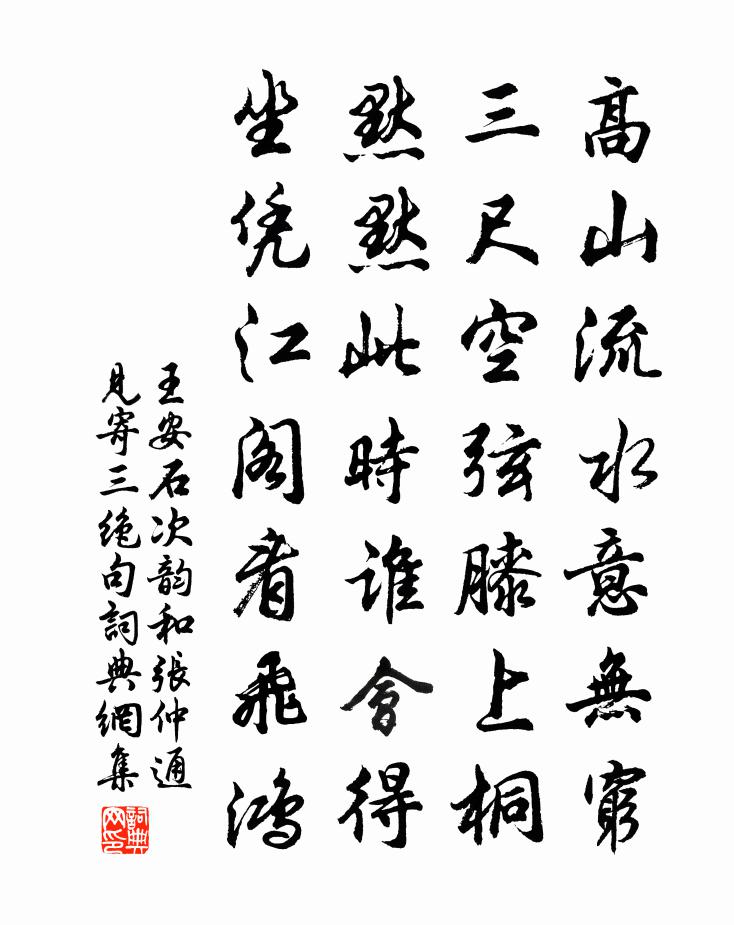 高山流水意無窮
三尺空弦膝上桐
默默此時誰會得
坐凭江阁看飛鴻
王安石次韵和張仲通
見寄三絶句詞典網集
詞典网印